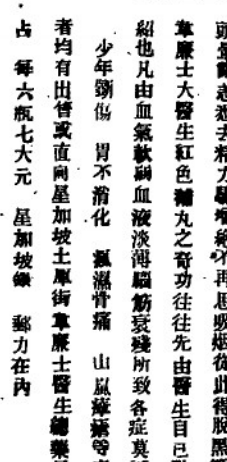 精力
不再思吸烟從此得脫黑
韋廉士大醫生紅色補丸之奇功往往先由醫生自己
紹也凡由血氣軟弱血液淡薄腦筋衰殘所致各症莫
少年斵傷 胃不消化 瘋濕骨痛 山嵐瘴瘧等
者均有出售或直向星加坡土厘街韋廉士醫生總藥
占 每六瓶七大元 星加坡銀 郵力在內